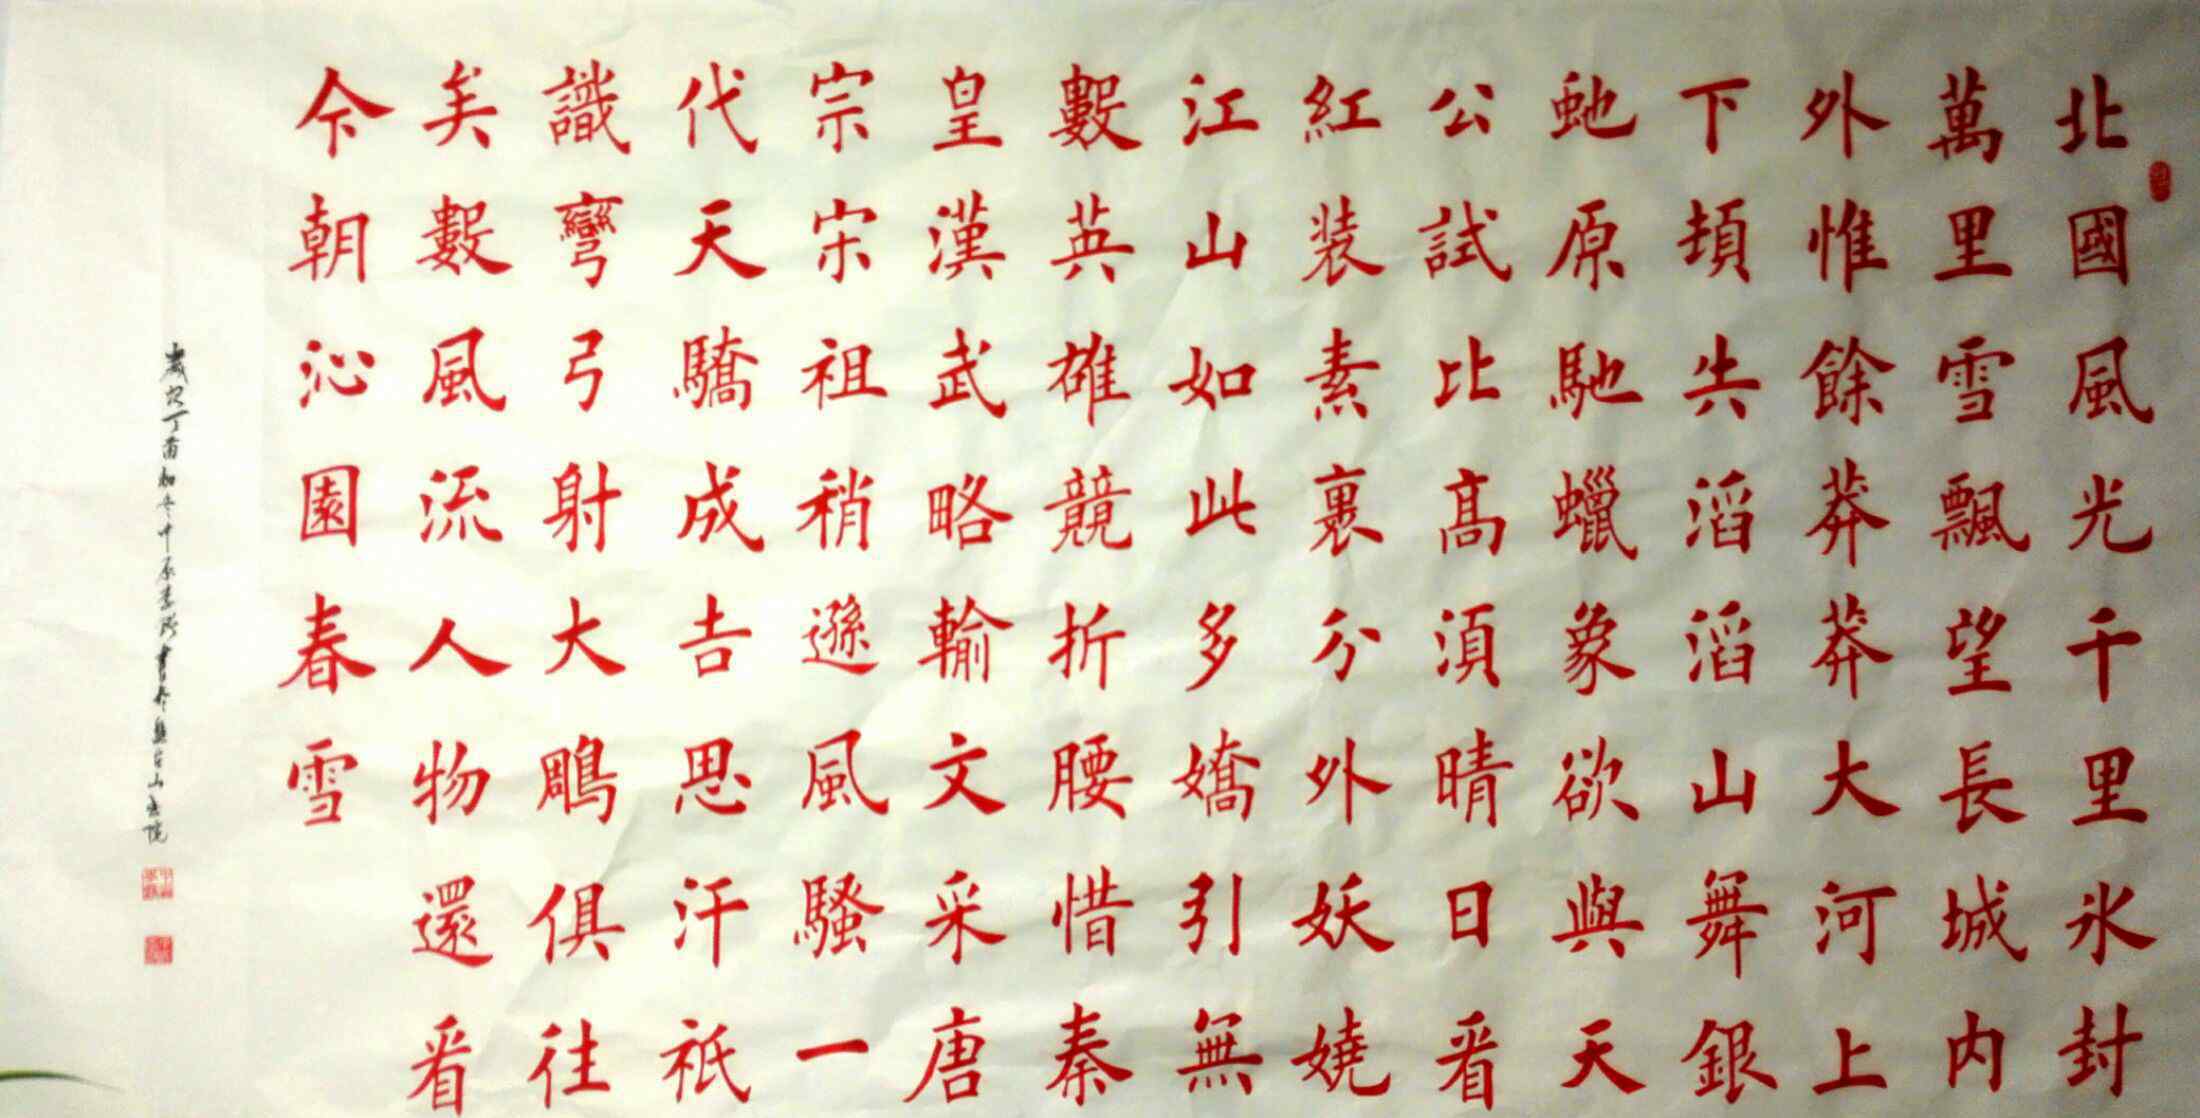 北國風光千里氷封
萬里雪飄望長城内
外惟餘莽莽大河上
下頓失滔滔山舞銀
虵原馳蠟象欲與天
公試比高須晴日看
紅装素裹分外妖嬈
江山如此多嬌引無
數英雄競折腰惜秦
皇漢武略輸文采唐
宗宋祖稍遜風騷一
代天驕成吉思汗祇
識彎弓射大鵰俱往
矣數風流人物還看
今朝沁園春雪
歲次丁酉初冬中原李 書於 台山書院